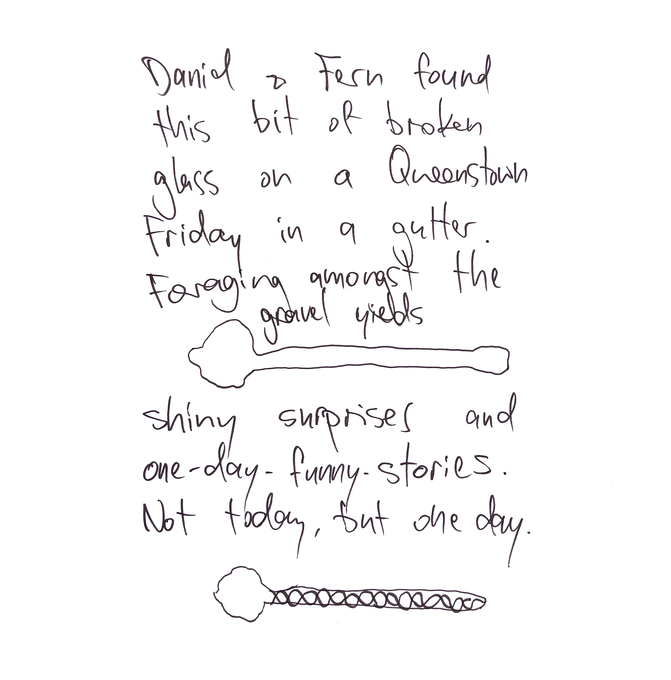 Daniel & Fern found
this bit of broken
glass on a Queenstown
Friday in a gutter.
Foraging amongst the
gravel yields
shiny surprises and
one-day-funny-stories.
Not today, but one day.